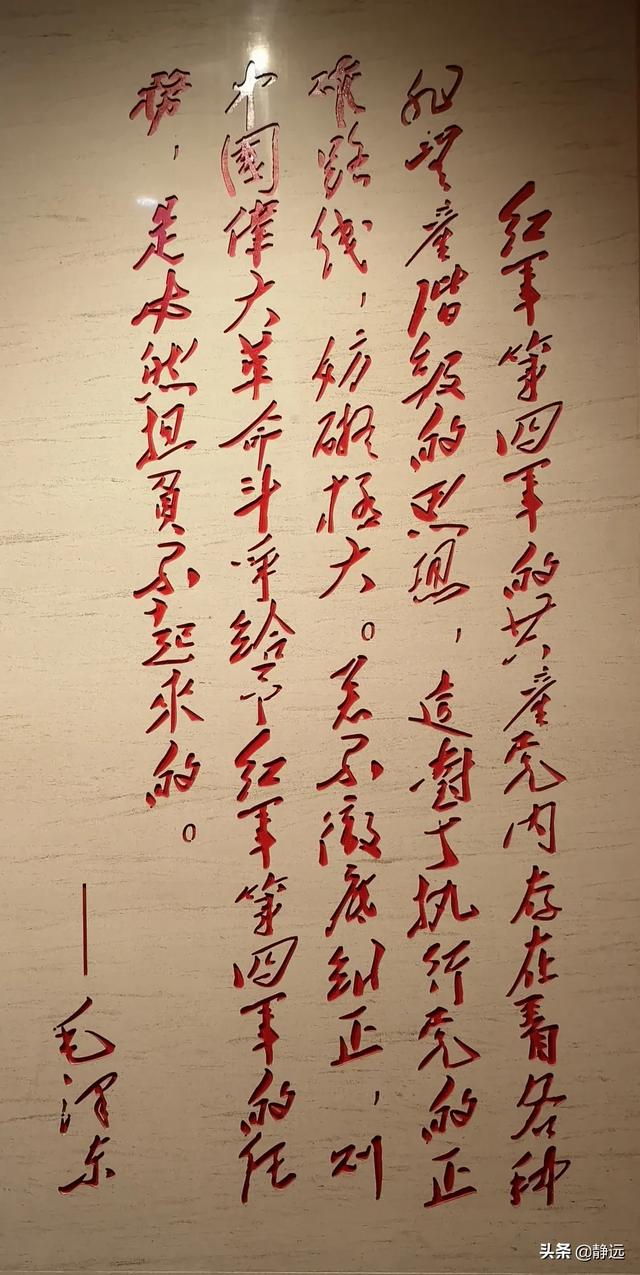 红军第四军的共產党内存在着各种
非無產階级的思想，這對于执行党的正
確路线，妨礙極大。若不徹底纠正，则
中國偉大革命斗争给予红军第四军的任
務，是必然担負不起來的。
——毛泽东
头条 @静远